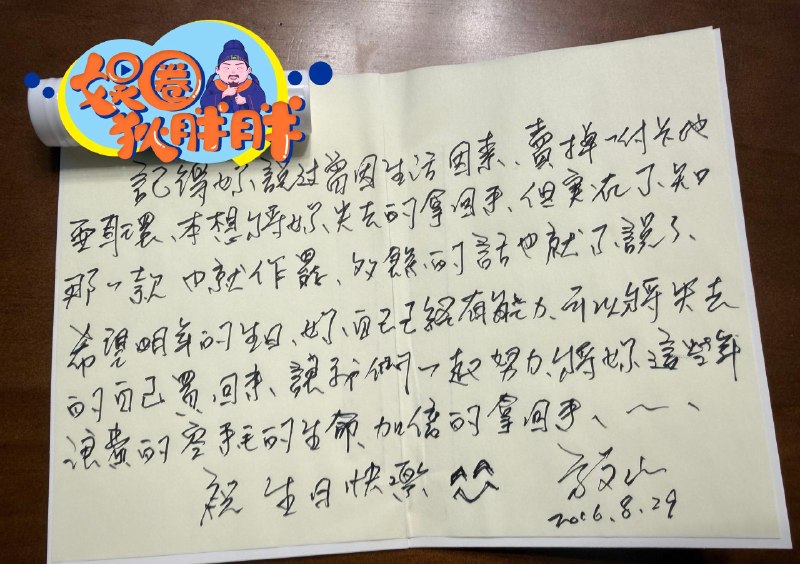 娱圈
狄胖胖
記得妳說过曾因生活因素、賣掉一付卡地
亞耳環、本想將妳失去的拿回來、但實在不知
那一款 也就作罷、多餘的話也就不說了、
希望明年的生日、妳自己已經有能力、可以將失去
的自己買回來、讓我們一起努力、將妳這些年
浪費的 的生命、加倍的拿回來、
祝 生日快樂
2016.8.29